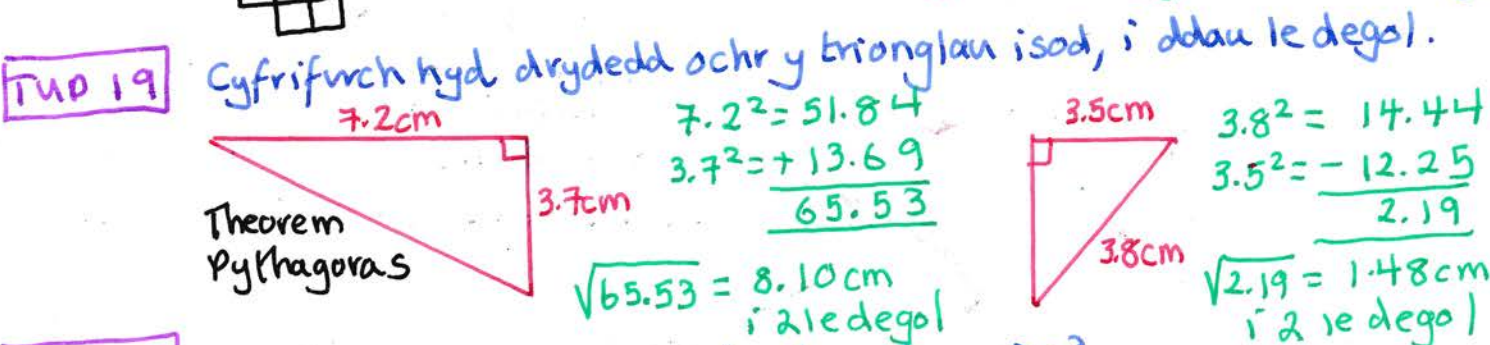 TUD 19
Cyfrifwch hyd drydedd ochr y trionglau isod, i ddau le degol.
7.2cm
3.7cm
Theorem
Pythagoras
7.2² = 51.84
3.7² = + 13.69
65.53
√65.53 = 8.10cm
i 2 le degol
3.5cm
3.8cm
3.8² = 14.44
3.5² = - 12.25
2.19
√2.19 = 1.48cm
i 2 le degol